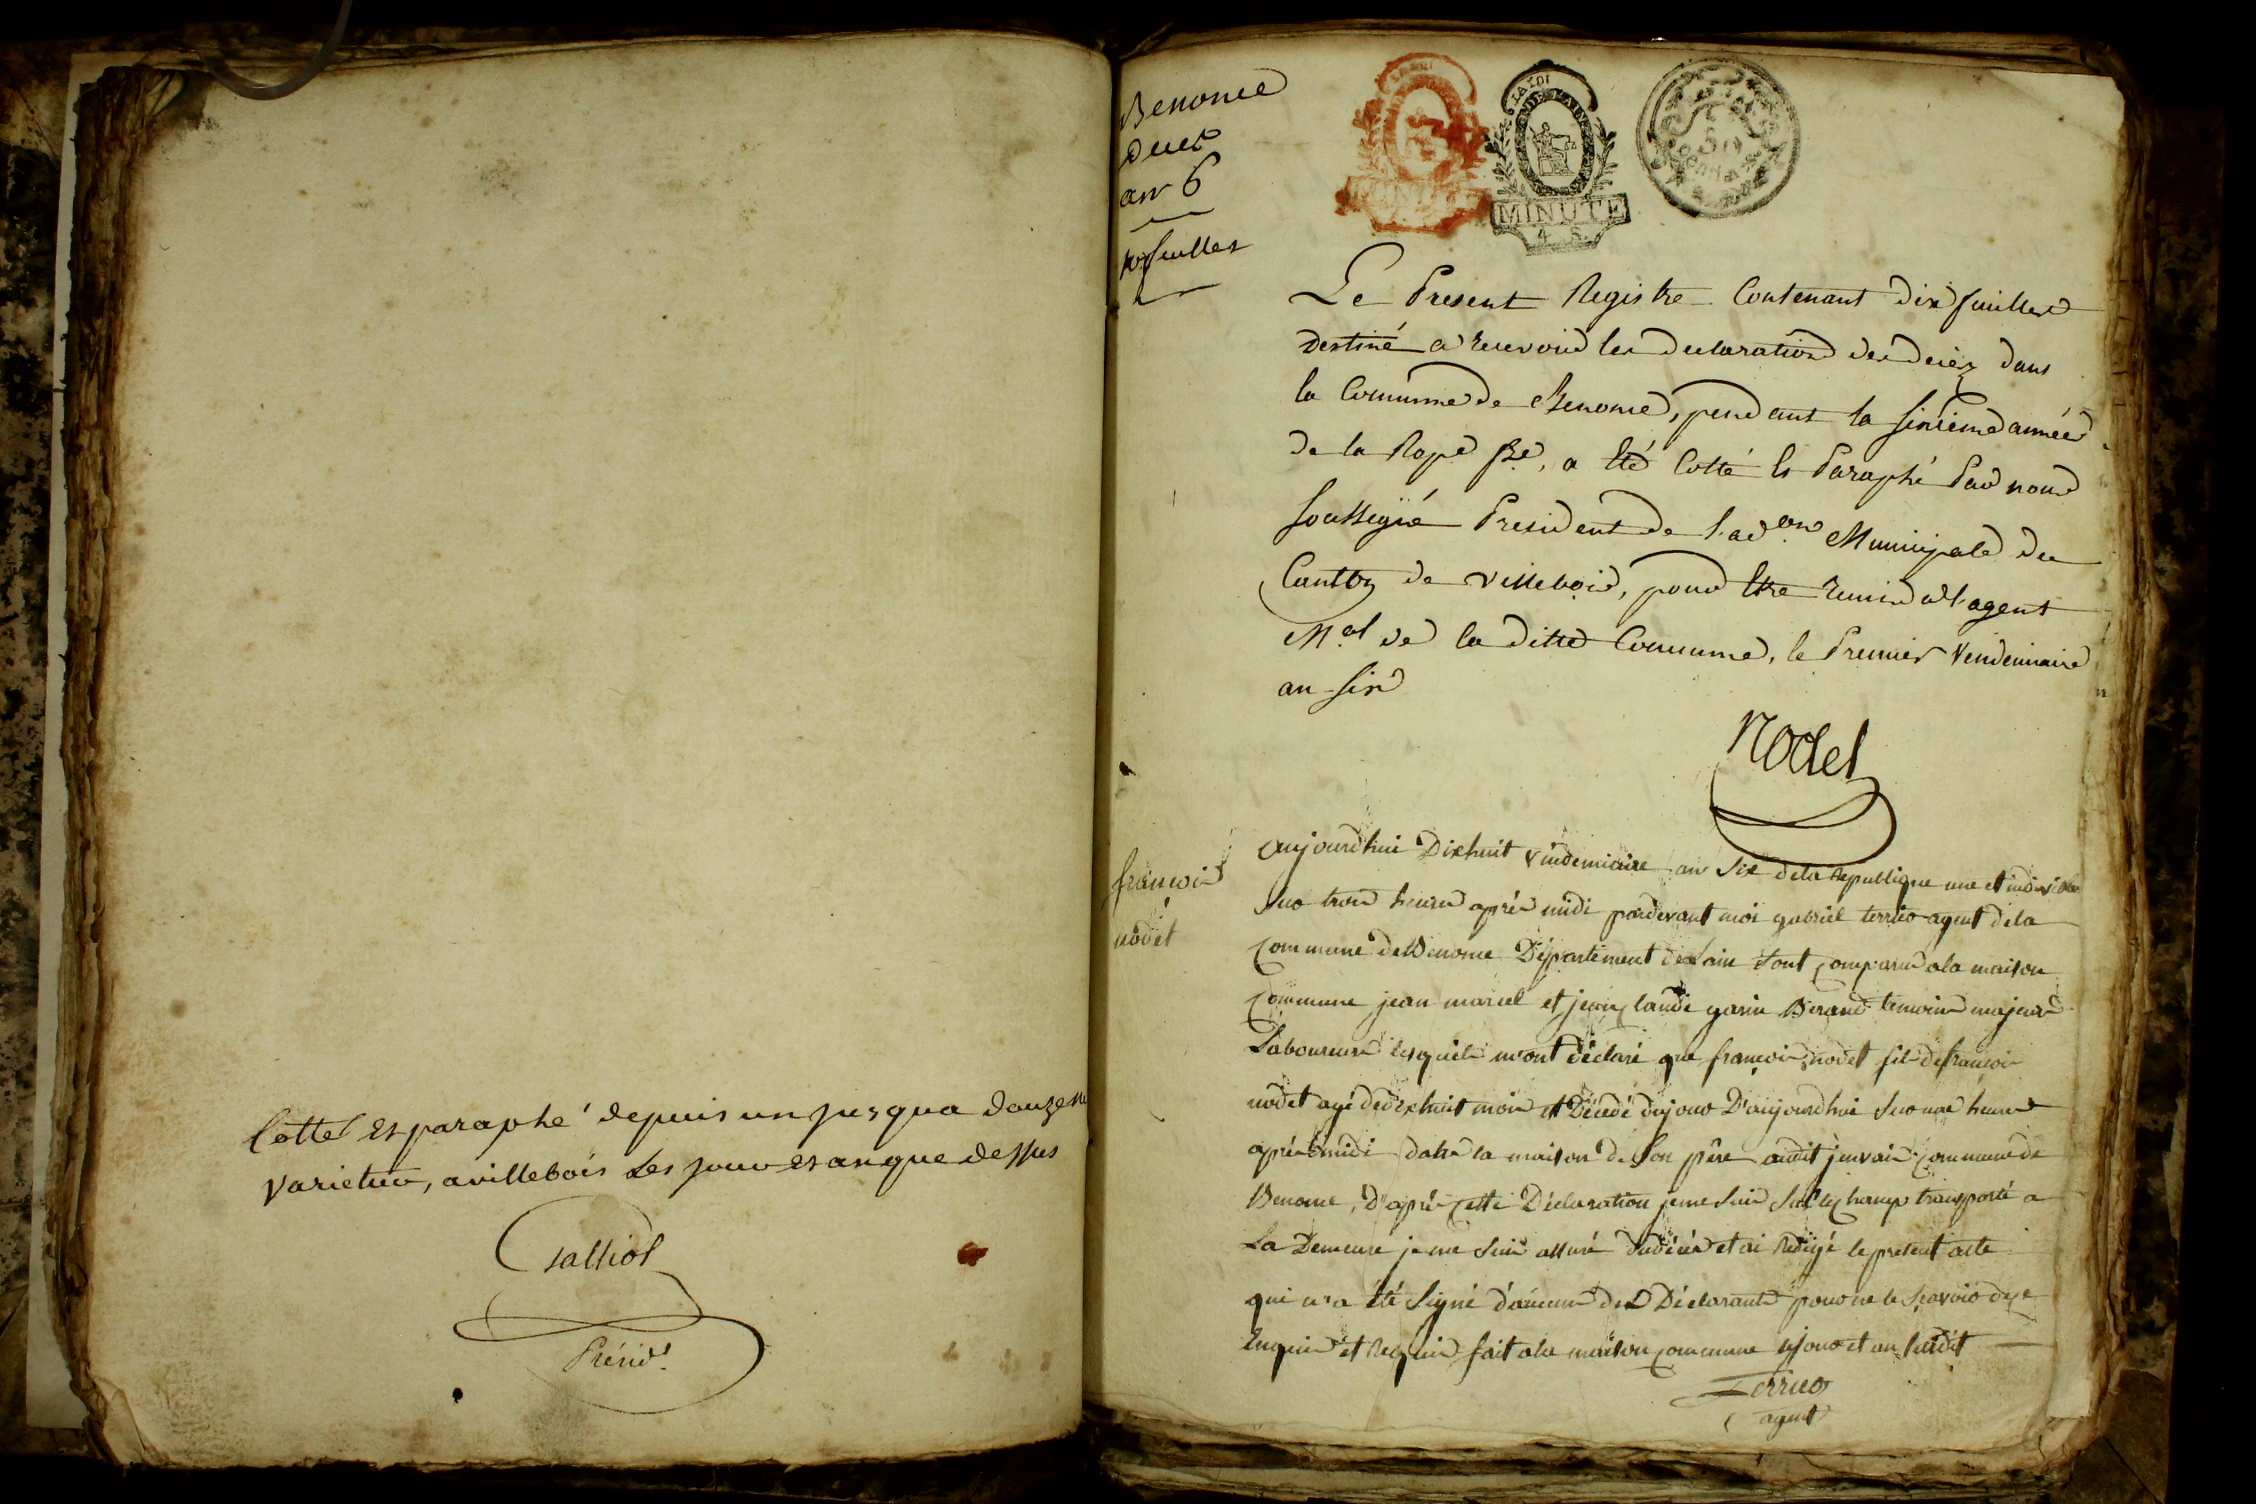 Cotté et paraphé depuis un jusqua douze ne
varietur, a villebois les jour et an que dessus
Galliot
Présidt.
Benonce
deces
an 6
10 feuilles
LA LOI
MINUTE
4 S.
Le Present Registre Contenant dix feuilles
destiné a recevoir les declaration des decès dans
la Commune de Benonce, pendant la sixieme année
de la Rep.e fse, a été Cotté et Paraphé Par nous
soussigné President de l'ad.on Municipale du
Canton de villebois, pour être remis a l'agent
M.al de la ditte Commune, le Premier Vendemiaire
an six
Nodet
françois
nodet
aujourdhui Dixhuit vendemiaire an six dela Republique une et indivisible
sur trois heures après midi pardevant moi gabriel terrier agent dela
commune de Benonce Département de Lain sont comparus ala maison
commune jean marcel et jean claude garin Berand temoins majeurs
Laboureurs lesquels m'ont déclaré que françois nodet fils de françois
nodet agé de dixhuit mois est Décédé dujour D'aujourdhui sur une heure
après midi dans la maison de son père audit commune de
Benonce, D'après cette Déclaration je me suis sur le champ transporté a
La Demeure je me suis assuré dudécés et ai Redigé le present acte
qui n'a été signé d'aucun des Déclarants pour ne le sçavoir de ce
enquis et Requis fait ala maison commune les jour et an susdit
Terrier
agent